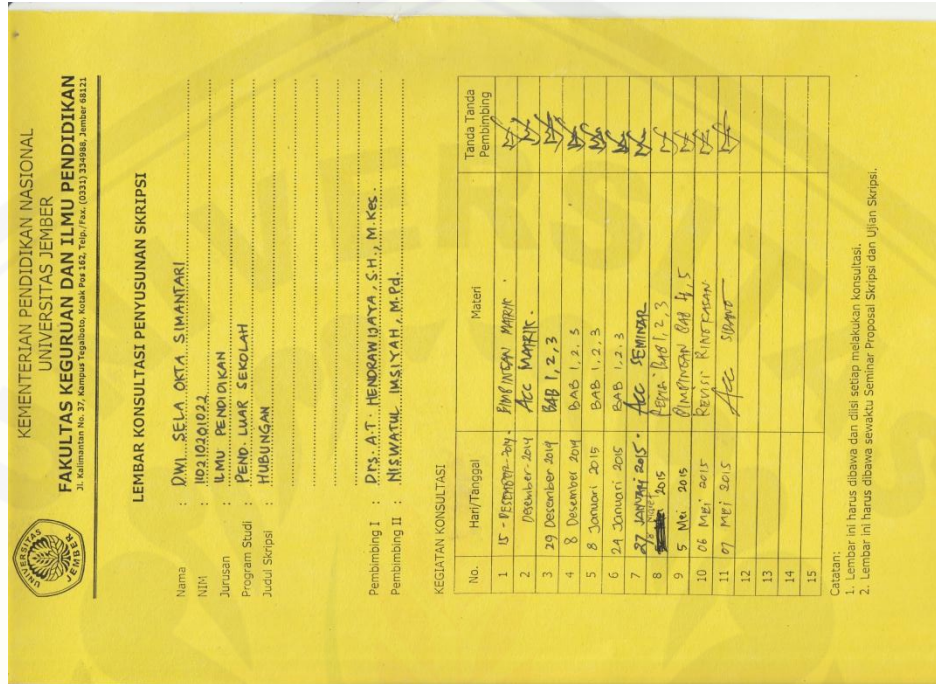 KEMENTERIAN PENDIDIKAN NASIONAL
UNIVERSITAS JEMBER
FAKULTAS KEGURUAN DAN ILMU PENDIDIKAN
Jl. Kalimantan No. 37, Kampus Tegalboto, Kotak Pos 162, Telp./Fax. (0331) 334988, Jember 68121
UNIVERSITAS JEMBER
LEMBAR KONSULTASI PENYUSUNAN SKRIPSI
Nama : DWI SELA OKTA SIMANTARI
NIM : 110210201022
Jurusan : ILMU PENDIDIKAN
Program Studi : PEND. LUAR SEKOLAH
Judul Skripsi : HUBUNGAN
Pembimbing I : Drs. A.T. HENDRAWIJAYA, S.H., M.Kes.
Pembimbing II : NISWATUL IMSIYAH, M.Pd.
KEGIATAN KONSULTASI
No. Hari/Tanggal Materi Tanda Tanda Pembimbing
1 15 - DESEMBER-2014. BIMBINGAN MATRIK.
2 Desember-2014 Acc MATRIK.
3 29 Desember 2014 BAB 1, 2, 3
4 8 Desember 2014 BAB 1, 2, 3
5 8 Januari 2015 BAB 1, 2, 3
6 24 Januari 2015 BAB 1, 2, 3
7 27 JANUARI 2015. Acc SEMINAR
8 2015 Revisi BAB 1, 2, 3
9 5 Mei 2015 BIMBINGAN BAB 4, 5
10 06 Mei 2015 REVISI RINGKASAN
11 07 Mei 2015 Acc SIDANG
12
13
14
15
Catatan:
1. Lembar ini harus dibawa dan diisi setiap melakukan konsultasi.
2. Lembar ini harus dibawa sewaktu Seminar Proposal Skripsi dan Ujian Skripsi.